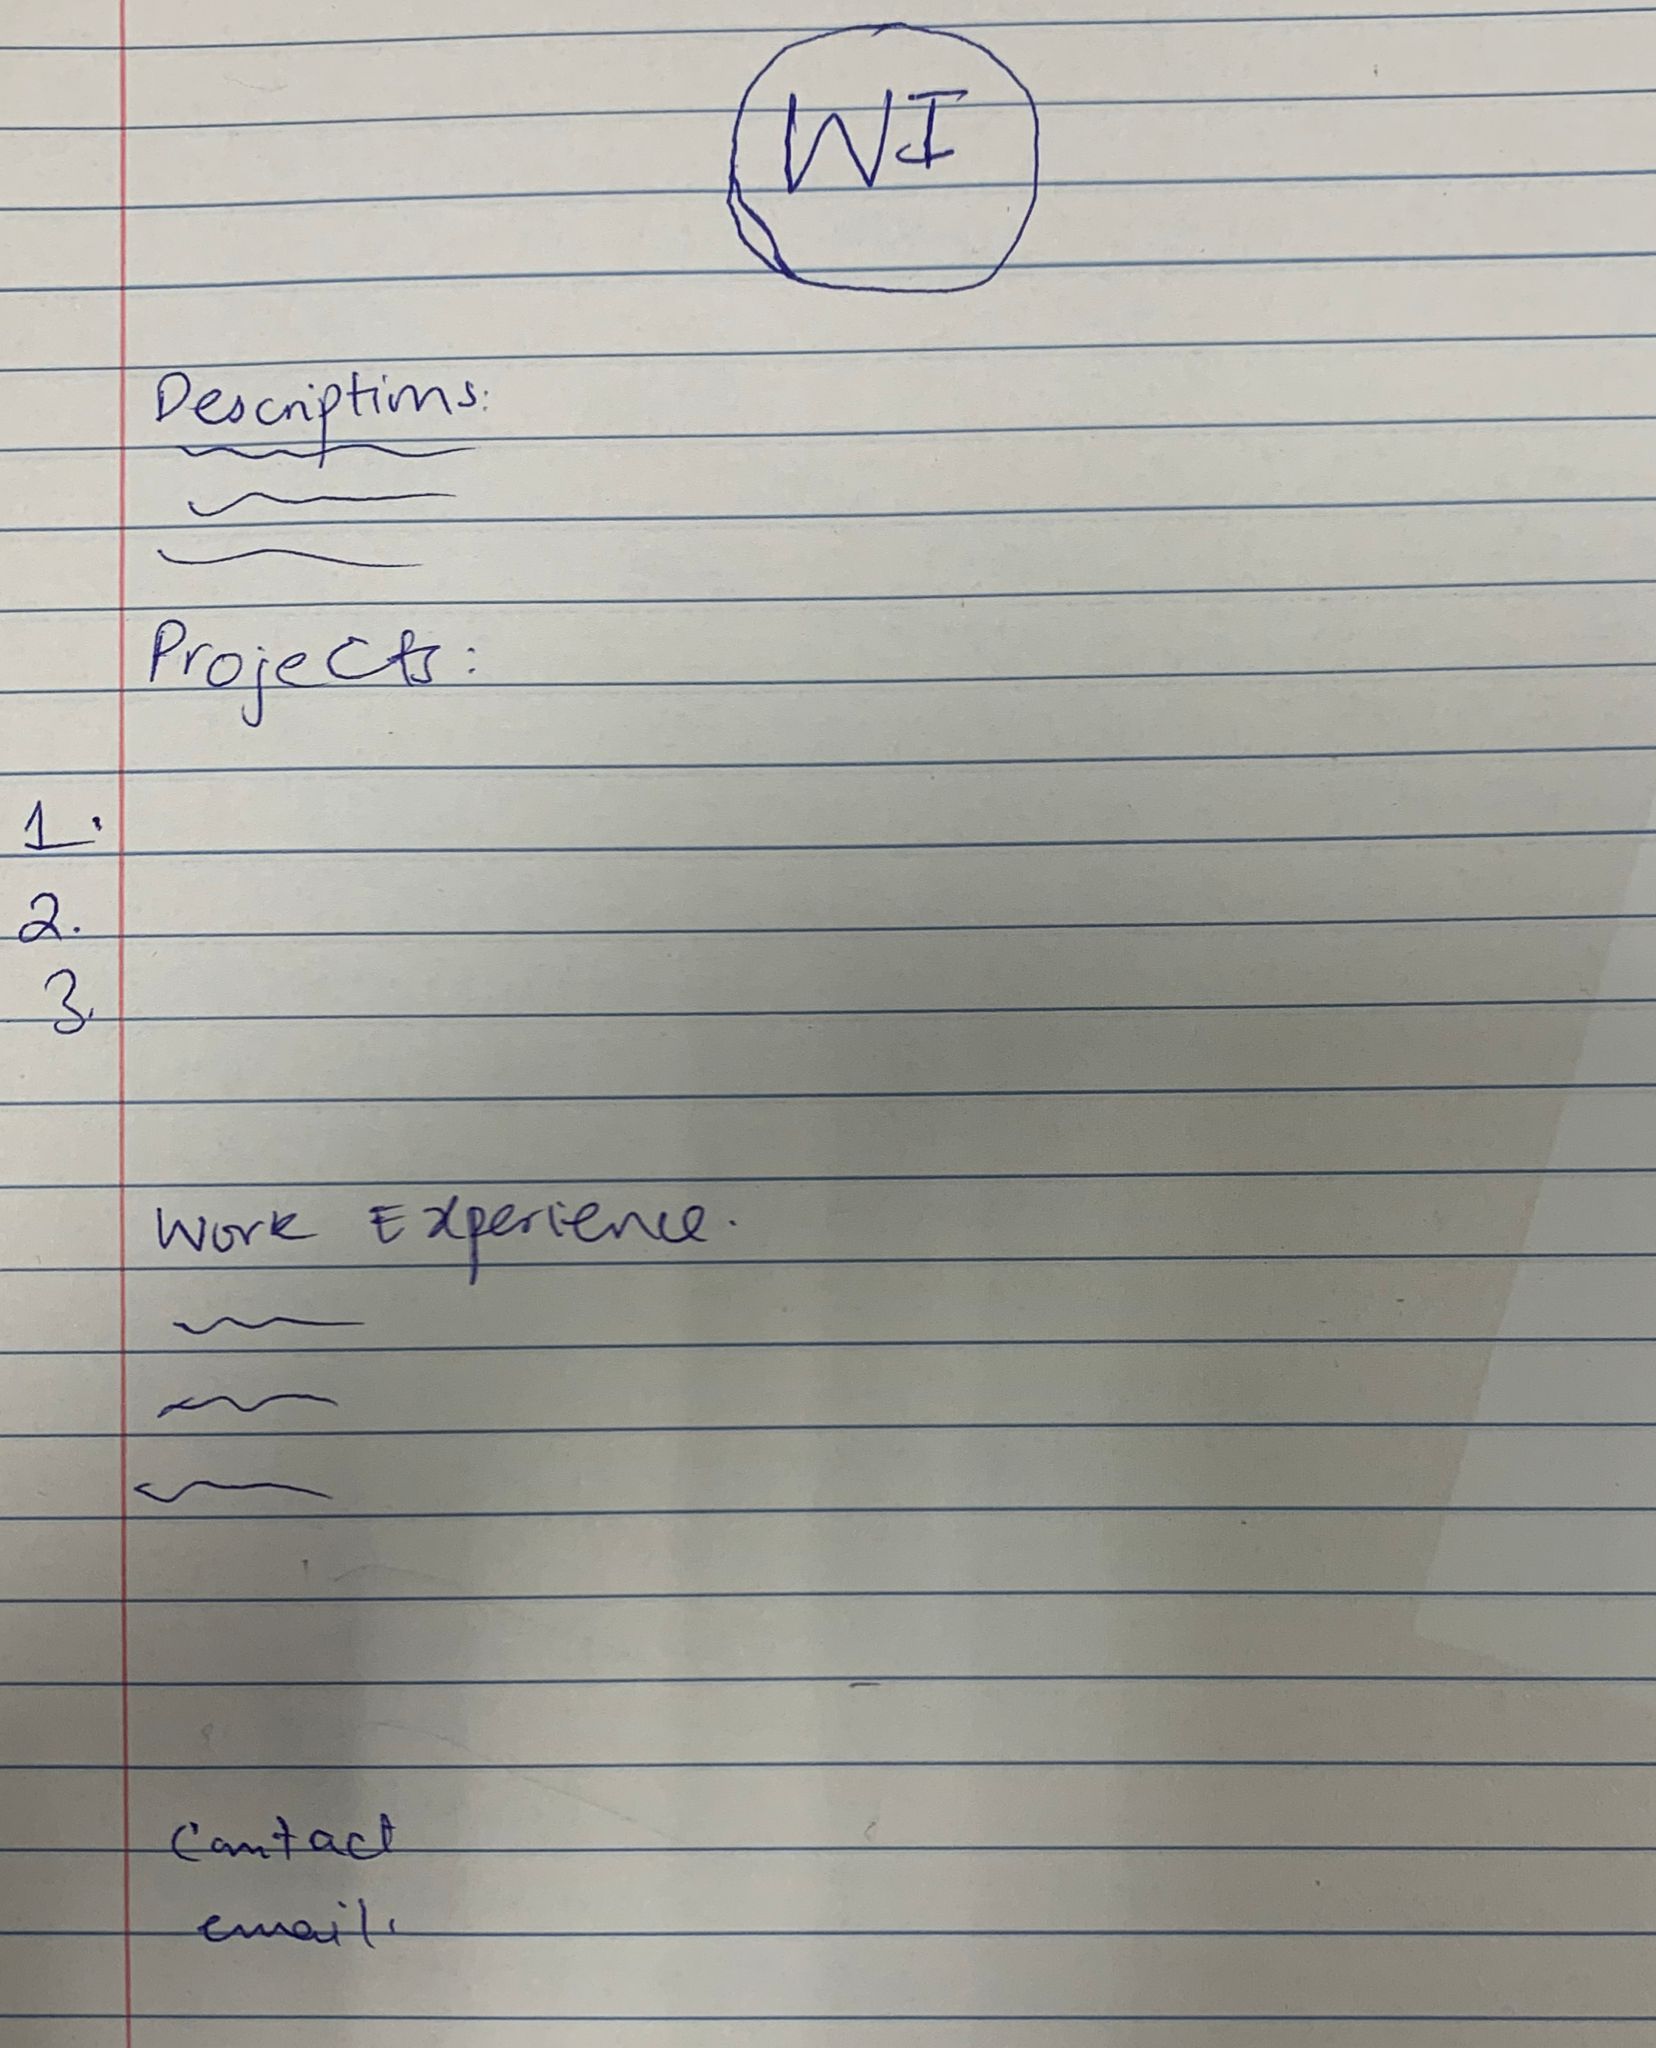 WI
Descriptions:
Projects:
1.
2.
3.
Work Experience.
Contact
email.